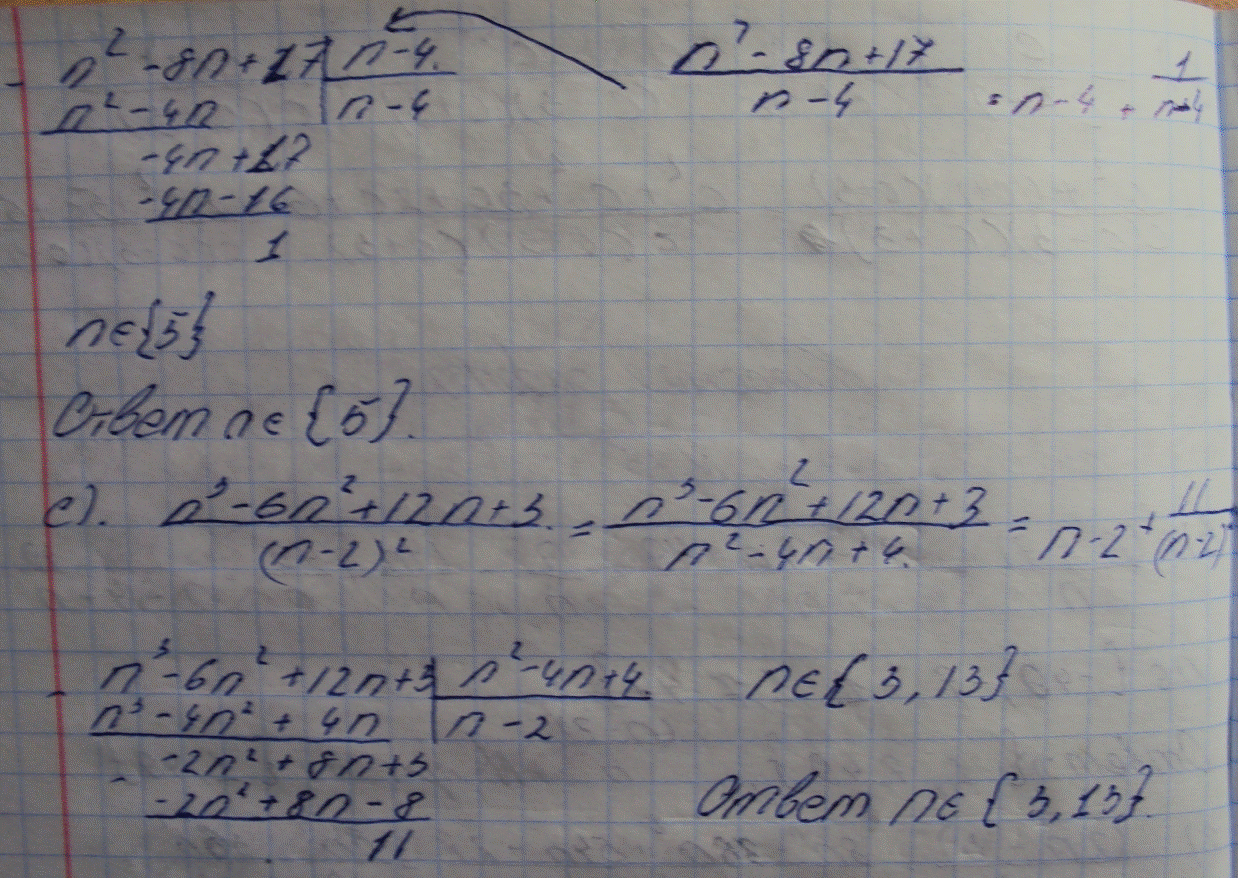 n² - 8n + 17 | n - 4.
n² - 4n | n - 4
-4n + 17
-4n - 16
1
n² - 8n + 17 / n - 4 = n - 4 + 1 / n - 4
n ∈ {5}
Ответ n ∈ {5}.
c). n³ - 6n² + 12n + 3. / (n - 2)² = n³ - 6n² + 12n + 3 / n² - 4n + 4. = n - 2 + 11 / (n - 2)
n³ - 6n² + 12n + 3 | n² - 4n + 4.
n³ - 4n² + 4n | n - 2
-2n² + 8n + 3
-2n² + 8n - 8
11
n ∈ {3, 13}
Ответ n ∈ {3, 13}.